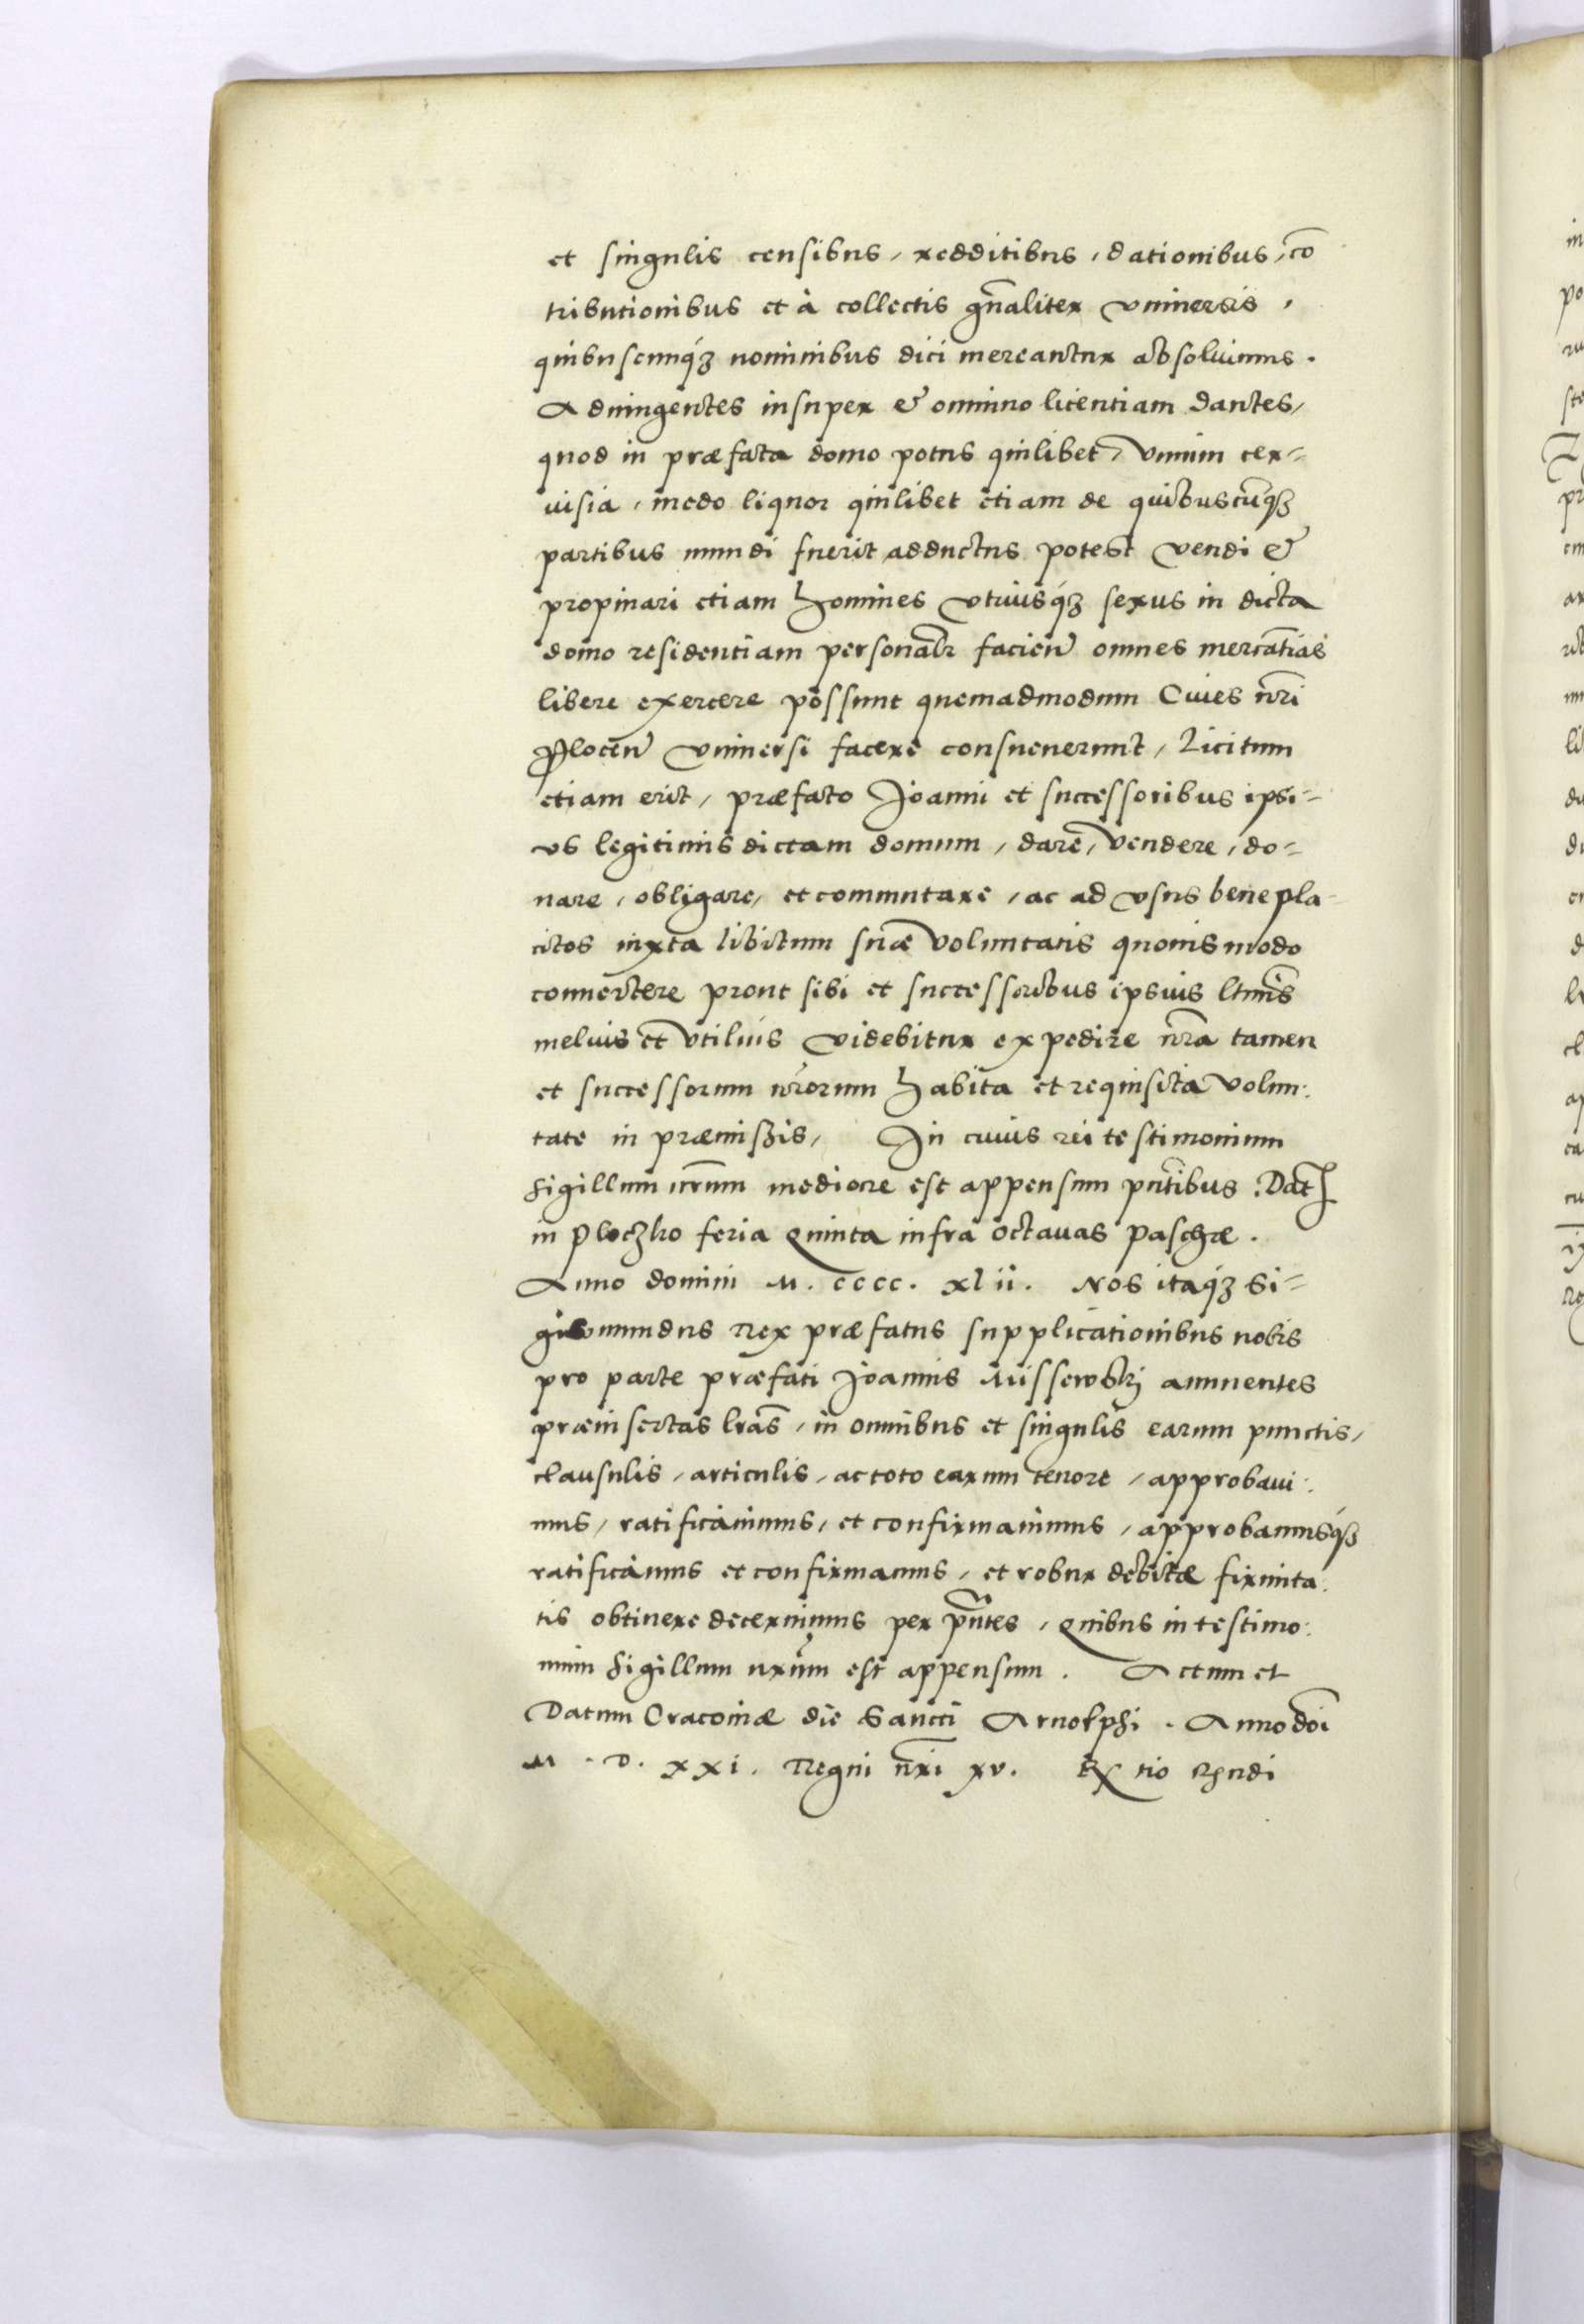 et singulis censibus, redditibus, dationibus, cō
tributionibus et à collectis gn̄aliter vniuersis,
quibuscunqꝫ nominibus dici mereantur absoluimus.
Adiungentes insuper & omnino licentiam dantes,
quod in præfata domo potus quilibet, vinum cer=
uisia, medo liquor quilibet etiam de quibuscūqꝫ
partibus mundi fuerit adductus potest vendi &
propinari etiam homines vtriusqꝫ sexus in dicta
domo residentiam personalr̄ facien̄ omnes mercātias
libere exercere possunt quemadmodum Ciues nr̄i
Plocen̄ vniuersi facere consueuerunt, Licitum
etiam erit, præfato Joanni et successoribus ipsi=
us legitimis dictam domum, dare, vendere, do=
nare, obligare, et commutare, ac ad vsus benepla=
citos iuxta libitum suæ voluntatis quouismodo
conuertere prout sibi et successoribus ipsius ltimis̄
melius et vtilius videbitur expedire nr̄a tamen
et successorum nr̄orum habita et requisita volun:
tate in præmissis, In cuius rei testimonium
sigillum nr̄um mediocre est appensum pn̄tibus. Dat
in Ploczko feria quinta infra octauas paschæ.
Anno domini M. cccc. xlii. Nos itaqꝫ Si=
gismundus Rex præfatus supplicationibus nobis
pro parte præfati Joannis Missewskj annuentes
præinsertas lr̄as, in omnibus et singulis earum punctis,
clausulis, articulis, ac toto earum tenore, approbaui:
mus, ratificauimus, et confirmauimus, approbamusqꝫ
ratificamus et confirmamus, et robur debitæ firmita:
tis obtinere decernimus per pn̄tes, quibus in testimo:
nium sigillum nr̄um est appensum. Actum et
Datum Cracouiæ die Sancti Arnolphi. Anno dn̄i
M. D. xxi. Regni nr̄i xv. Ex tio